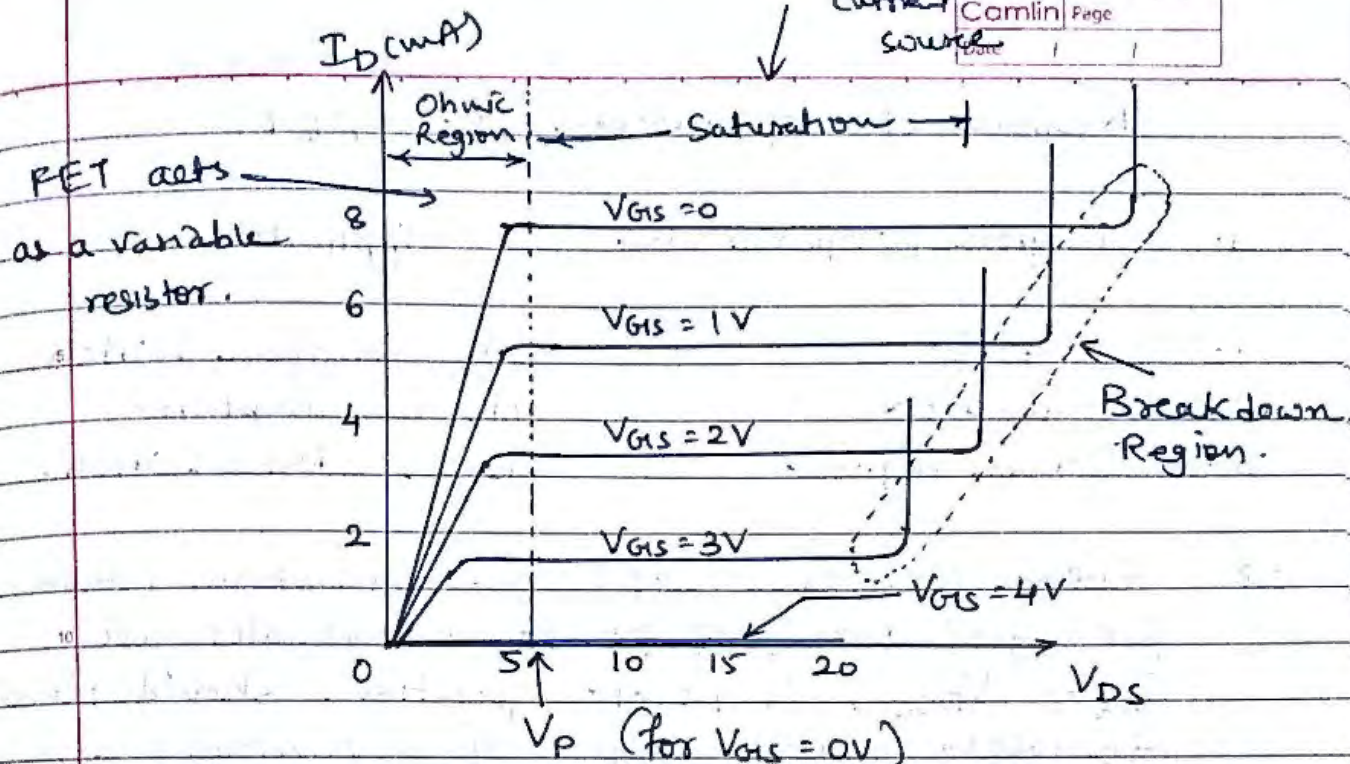 current
source
Camlin Page
Date / /
I_D (mA)
Ohmic
Region
Saturation
FET acts
as a variable
resistor.
8
6
4
2
0
V_GS = 0
V_GS = 1V
V_GS = 2V
V_GS = 3V
V_GS = 4V
Breakdown
Region.
5
10
5 10 15 20
V_DS
V_P (for V_GS = 0V)